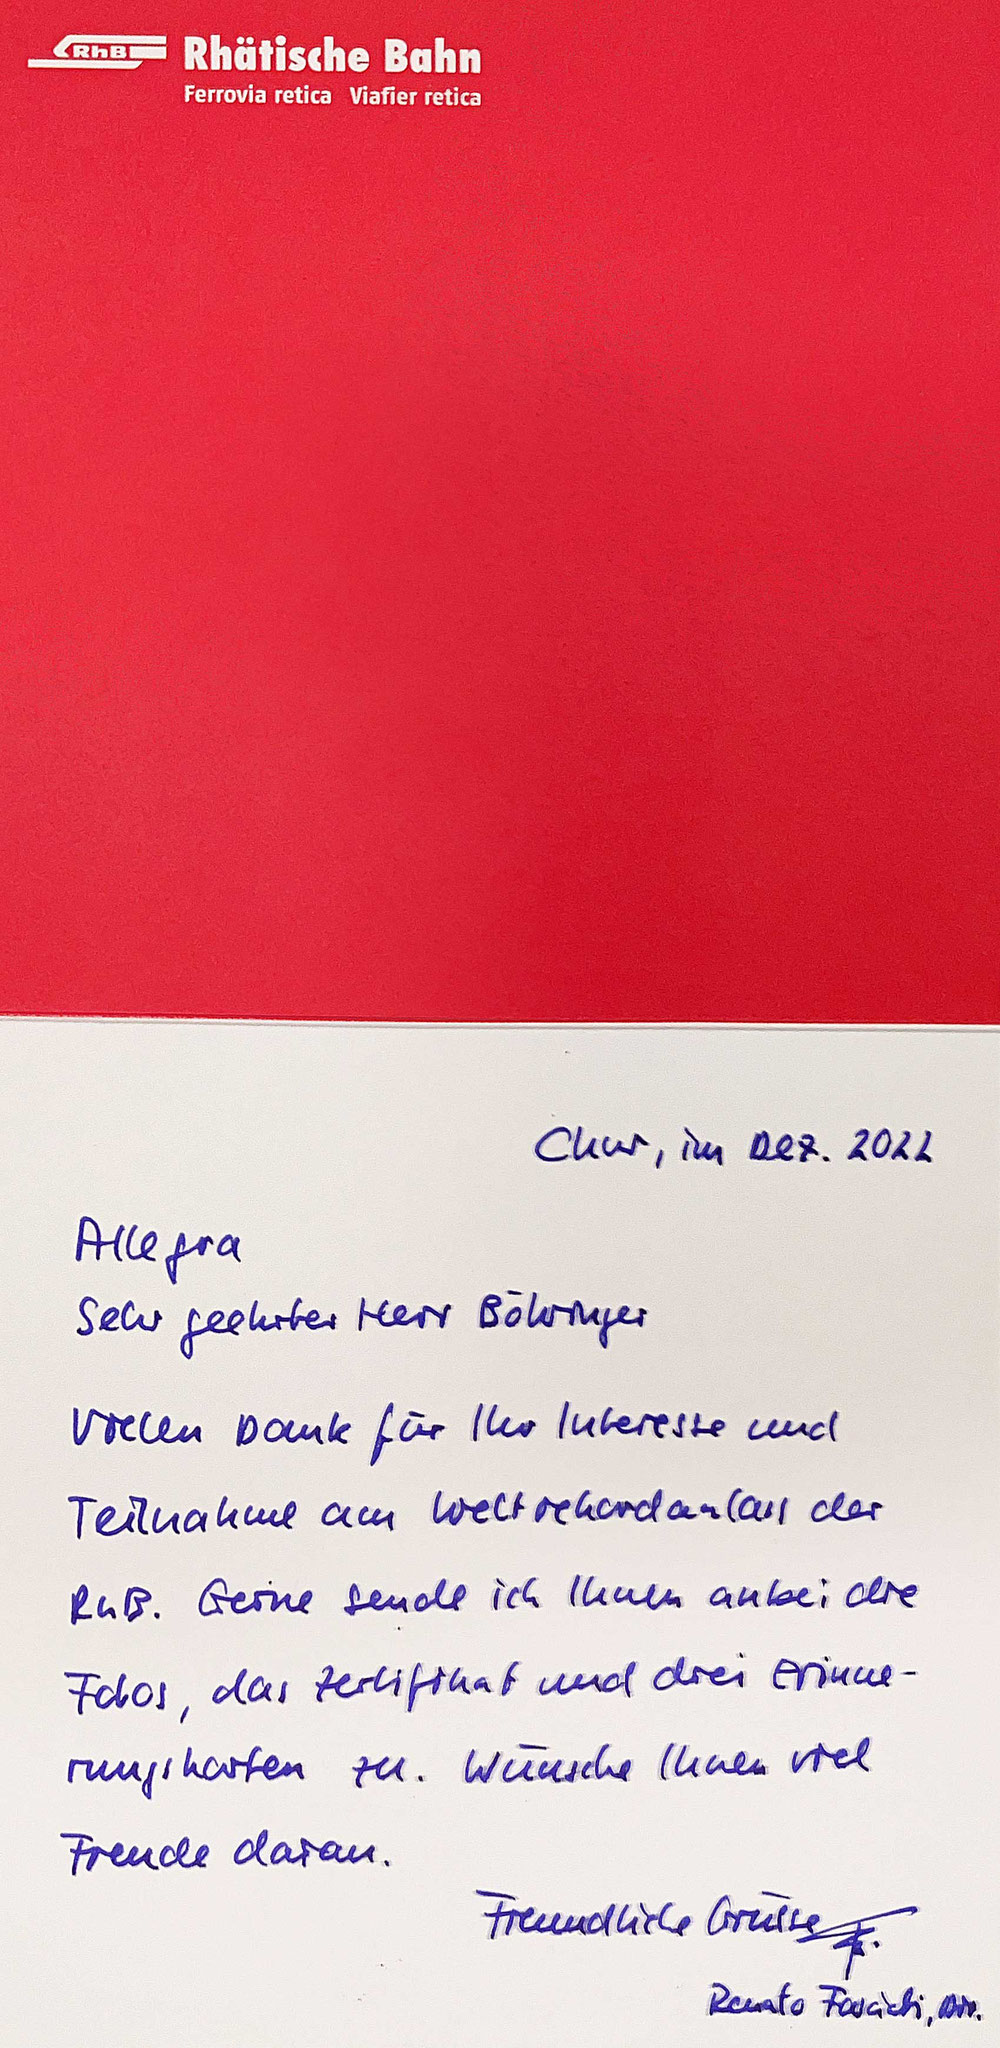 RhB Rhätische Bahn
Ferrovia retica Viafier retica
Chur, im Dez. 2022
Allegra
Sehr geehrter Herr Böhringer
Vielen Dank für Ihr Interesse und
Teilnahme am Weltrekordanlass der
RhB. Gerne sende ich Ihnen anbei die
Fotos, das Zertifikat und drei Erinne-
rungskarten zu. Wünsche Ihnen viel
Freude daran.
Freundliche Grüsse
Renato Fasciati, Dir.